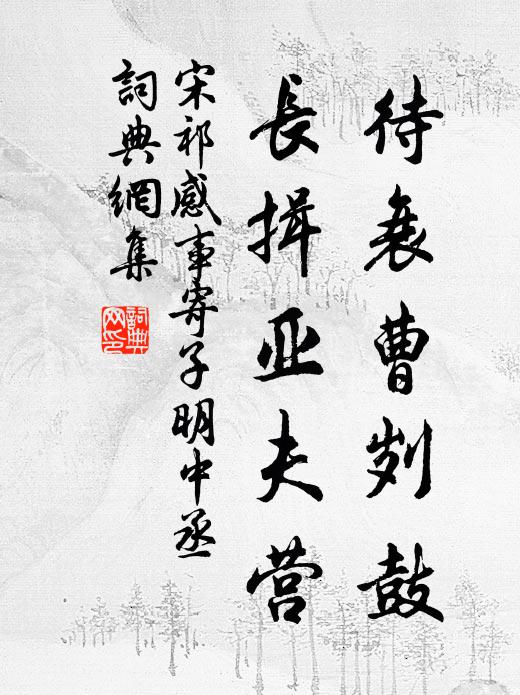 待衰曹刿鼓
長揖亚夫营
宋祁感事寄子明中丞
詞典網集
詞典网印